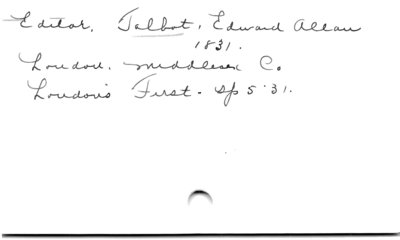 Editor. Talbot, Edward Allan
1831.
London. Middlesex Co.
London's First. Sp 5'31.